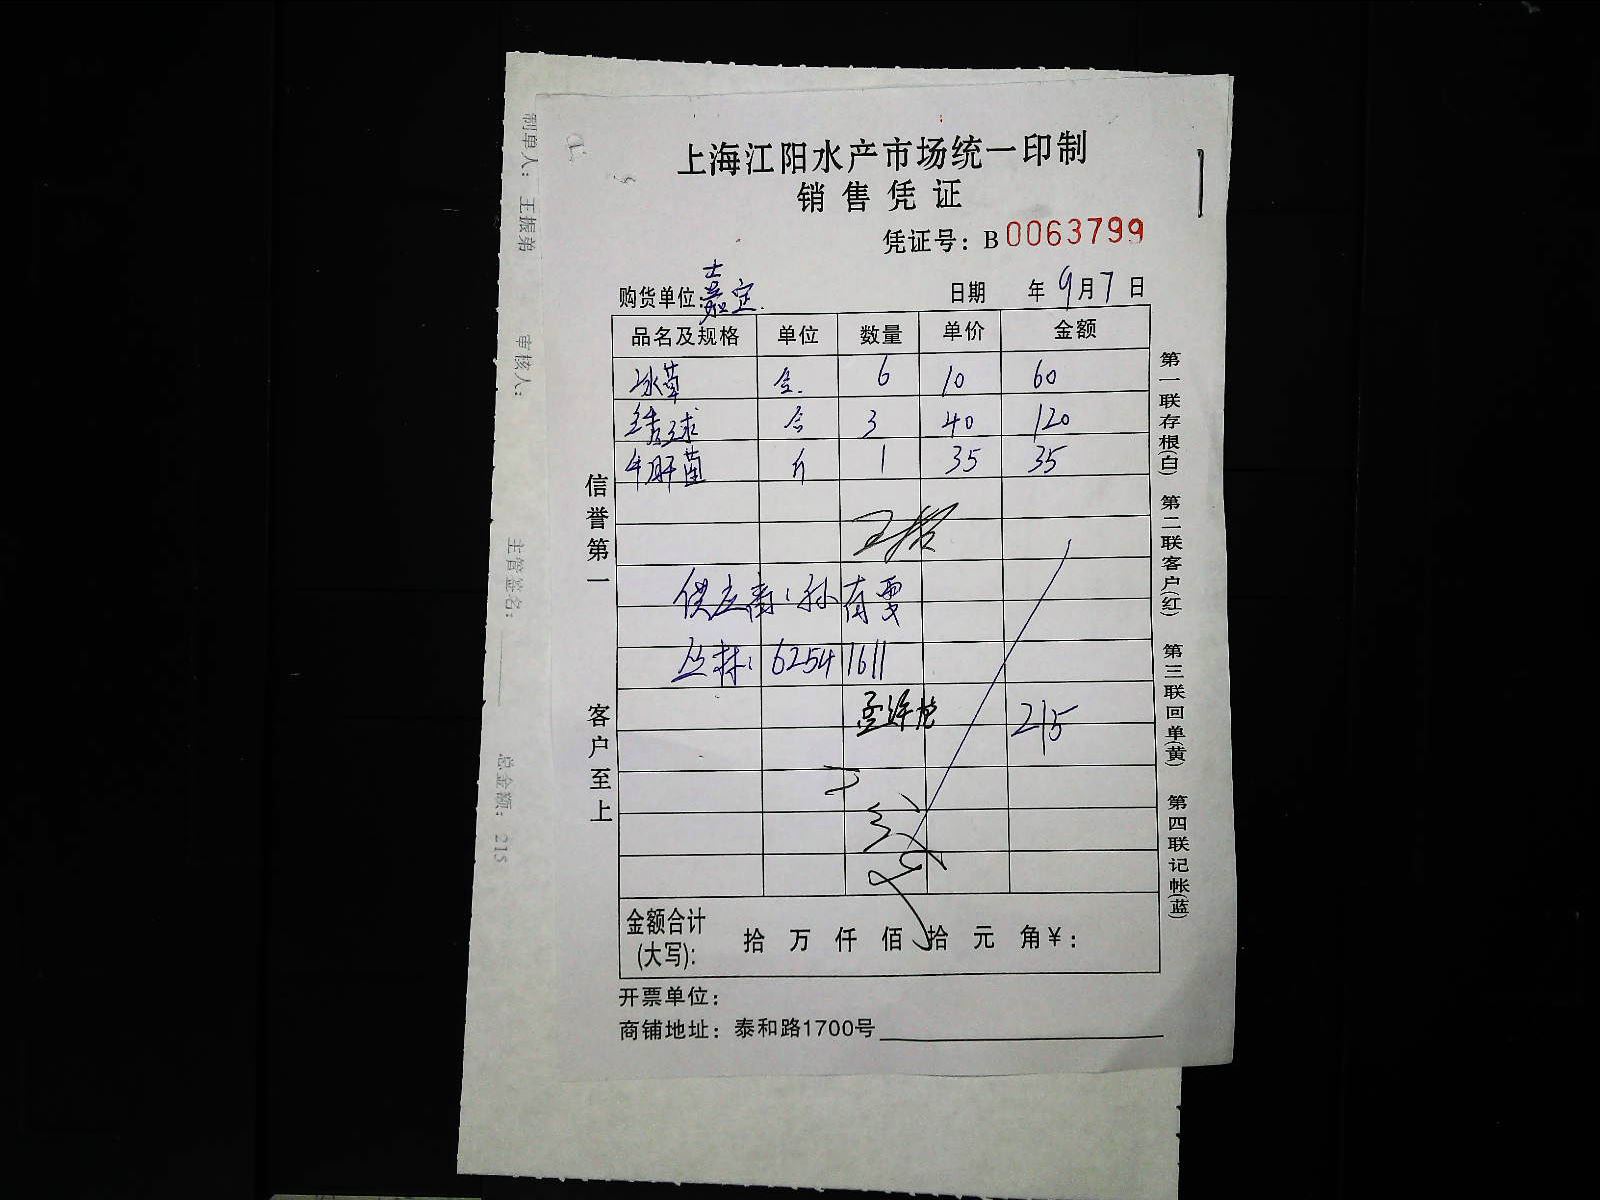 上海江阳水产市场统一印制
销售凭证
凭证号：B 0063799
购货单位：嘉定
日期 年 9月7日
品名及规格 单位 数量 单价 金额
冰草 盒 6 10 60
结球 合 3 40 120
牛肝菌 斤 1 35 35
供应商：孙
丛林：62541611
215
金额合计
(大写)： 拾 万 仟 佰 拾 元 角¥：
开票单位：
商铺地址：泰和路1700号
信誉第一
客户至上
第一联存根(白) 第二联客户(红) 第三联回单(黄) 第四联记帐(蓝)
制单人：王振弟 审核人： 主管签名： 总金额：215